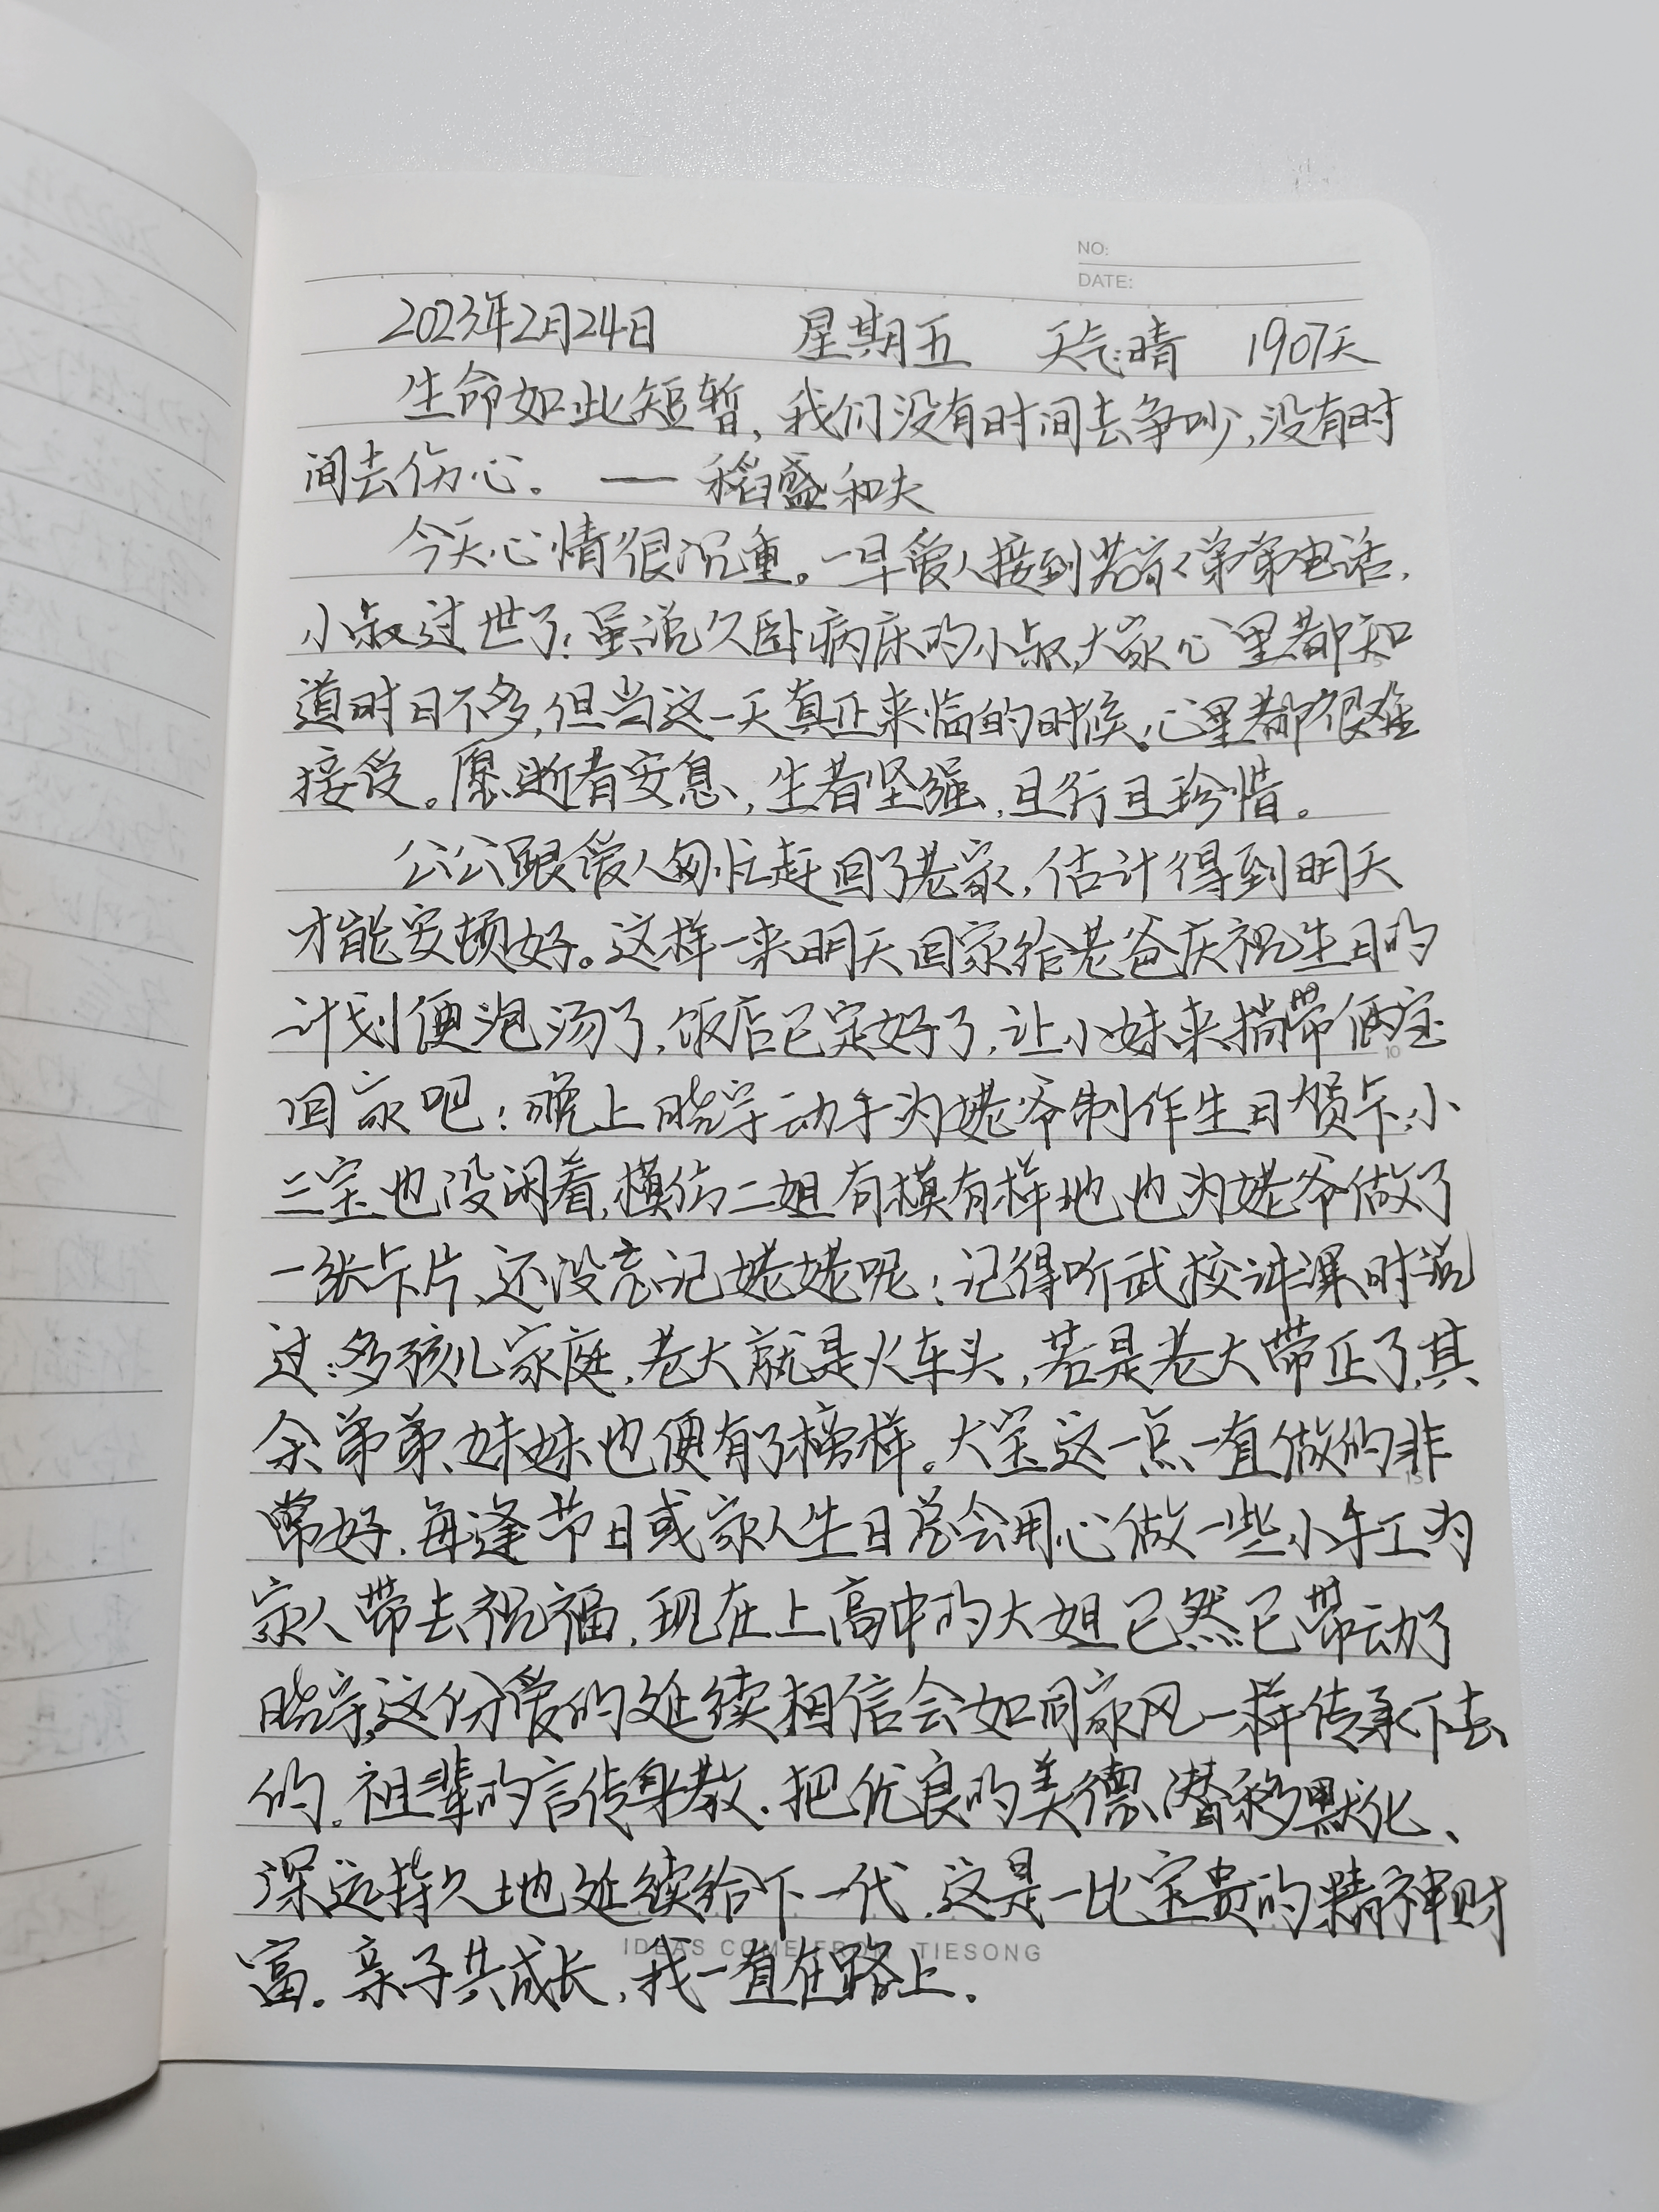 NO:
DATE:
2023年2月24日 星期五 天气:晴 1907天
生命如此短暂,我们没有时间去争吵,没有时
间去伤心。 —— 稻盛和夫
今天心情很沉重。一早爱人接到弟弟电话,
小叔过世了!虽说久卧病床的小叔,大家心里都知
道时日不多,但当这一天真正来临的时候,心里都很难
接受。愿逝者安息,生者坚强,且行且珍惜。
公公跟爱人匆忙赶回了老家,估计得到明天
才能安顿好。这样一来明天回家给老爸庆祝生日的
计划便泡汤了,饭店已定好了,让小妹来捎带俩宝
回家吧!晚上晓宇动手为姥爷制作生日贺卡,小
三宝也没闲着,模仿二姐有模有样地也为姥爷做了
一张卡片,还没忘记姥姥呢!记得听武校讲课时说
过:多孩儿家庭,老大就是火车头,若是老大带正了,其
余弟弟、妹妹也便有了榜样。大宝这一点一直做的非
常好,每逢节日或家人生日总会用心做一些小手工为
家人带去祝福,现在上高中的大姐已然已带动了
晓宇,这份爱的延续相信会如同家风一样传承下去
的。祖辈的言传身教,把优良的美德、潜移默化、
深远持久地延续给下一代,这是一比宝贵的精神财
富。亲子共成长,我一直在路上。
IDEAS COME FROM TIESONG
10
15